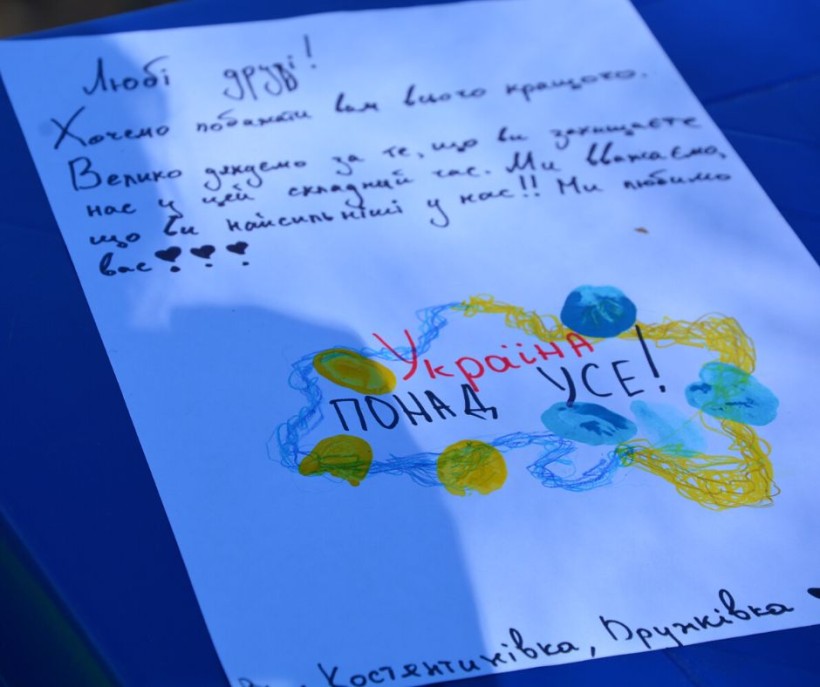 Любі друзі!
Хочемо побажати вам всього кращого.
Велико дякуємо за те, що ви захищаєте
нас у цей складний час. Ми вважаємо,
що ви найсильніші у нас!! Ми любимо
вас
Україна
ПОНАД УСЕ!
Костянтинівка, Дружківка